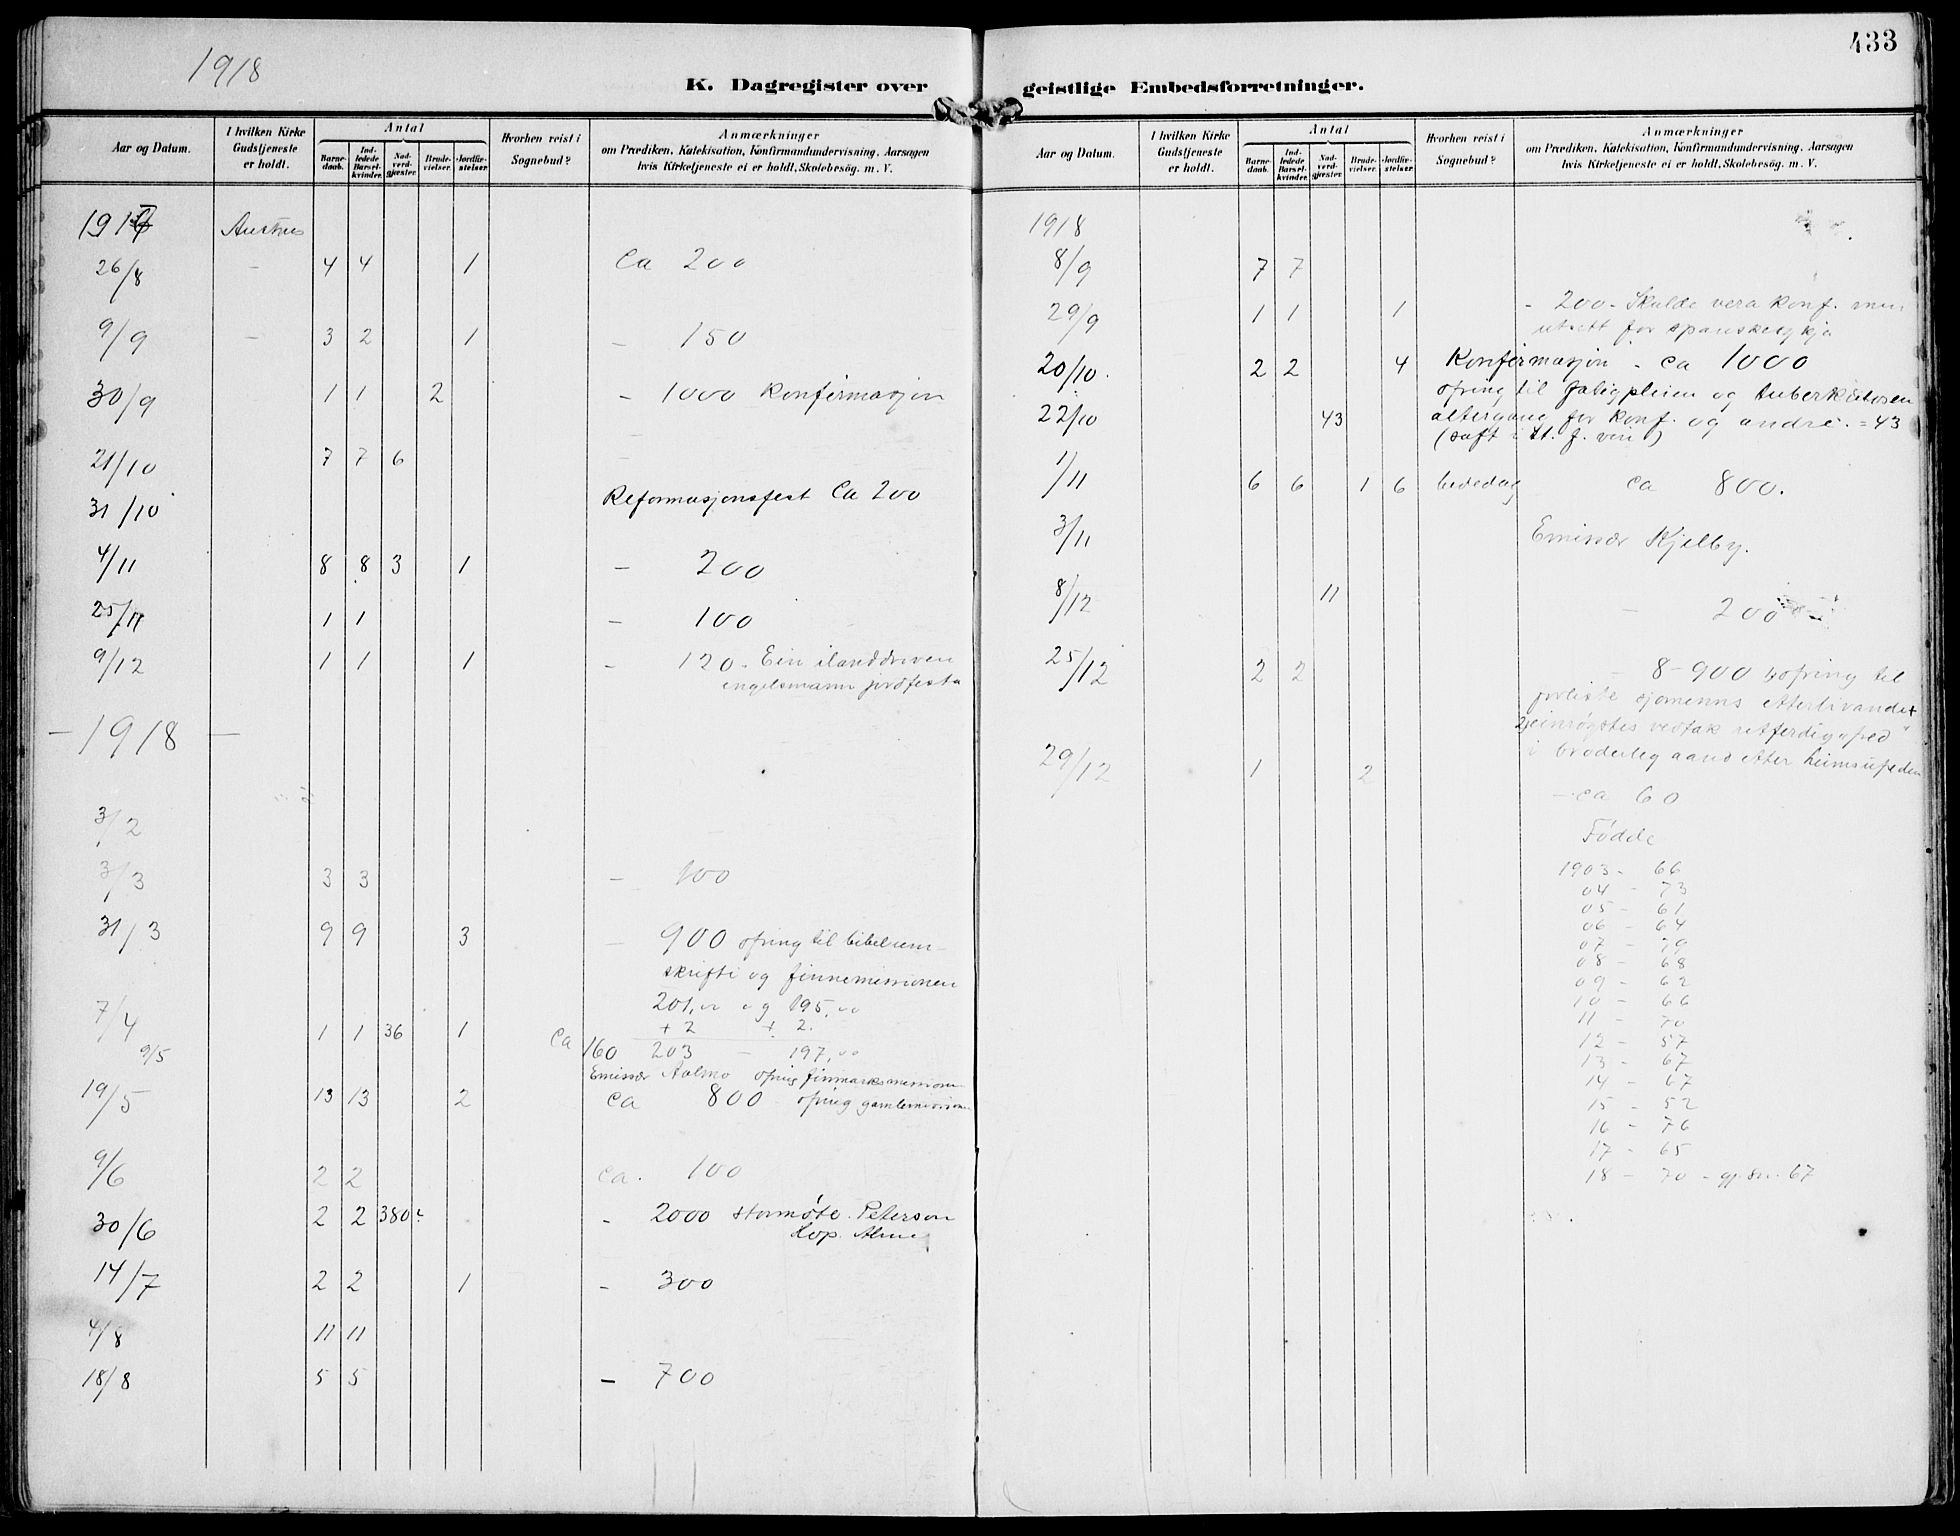 1918
433
K. Dagregister over
geistlige Embedsforretninger.
Aar og Datum.
I hvilken Kirke
Gudstjeneste
er holdt.
Antal
Barne-
daab.
Ind-
ledede
Barsel-
kvinder.
Nad-
verd-
gjæster.
Brude-
vielser.
Jordfæ-
stelser.
Hvorhen reist i
Sognebud?
Anmærkninger
om Prædiken, Katekisation, Konfirmandundervisning, Aarsagen
hvis Kirketjeneste ei er holdt, Skolebesøg. m. V.
1917
26/8 - 4 4 1 Ca 200
9/9 - 3 2 1 - 150
30/9 1 1 2 - 1000 Konfirmasjon
21/10 7 7 6 -
31/10 Reformasjonsfest Ca 200
4/11 8 8 3 1 - 200
25/11 1 1 - 100
9/12 1 1 1 - 120. Ein ilanddreven
engelsmann jordfesta
- 1918 -
3/2
3/3 3 3 - 100
31/3 9 9 3 - 900 ofring til
skrifti og finnemissionen
201,00 og 195,00
+ 2 + 2.
7/4 1 1 36 1 Ca 160 203 - 197,00
9/5 Emissær Aalmo ofring finmarksmission
19/5 13 13 2 ca 800 ofring
9/6 2 2 ca. 100
30/6 2 2 380? - 2000 stormøte. Peterson
14/7 2 2 1 - 300
4/8 11 11
18/8 5 5 - 700
Aar og Datum.
I hvilken Kirke
Gudstjeneste
er holdt.
Antal
Barne-
daab.
Ind-
ledede
Barsel-
kvinder.
Nad-
verd-
gjæster.
Brude-
vielser.
Jordfæ-
stelser.
Hvorhen reist i
Sognebud?
Anmærkninger
om Prædiken, Katekisation, Konfirmandundervisning, Aarsagen
hvis Kirketjeneste ei er holdt, Skolebesøg. m. V.
1918
8/9 7 7
29/9 1 1 1 - 200. Skulde vera konf. men
utsett for spanskesykja
20/10. 2 2 4 Konfirmasjon - ca 1000
ofring til og tuberkulosen
22/10 43 altergang for konf. og andre. = 43
(saft i st. f. vin)
1/11 6 6 1 6 bededag ca 800.
3/11 Emissær Kjelby.
8/12 11 - 200
25/12 2 2 - 8-900 ofring til
forliste sjomenns etterlivande +
vedtak
i broderleg aand etter
29/12 1 2
- ca 60
Fødde
1903 - 66
04 - 73
05 - 61
06 - 64
07 - 79
08 - 68
09 - 62
10 - 66
11 - 70
12 - 57
13 - 67
14 - 67
15 - 52
16 - 76
17 - 65
18 - 70 - gj.sn. 67